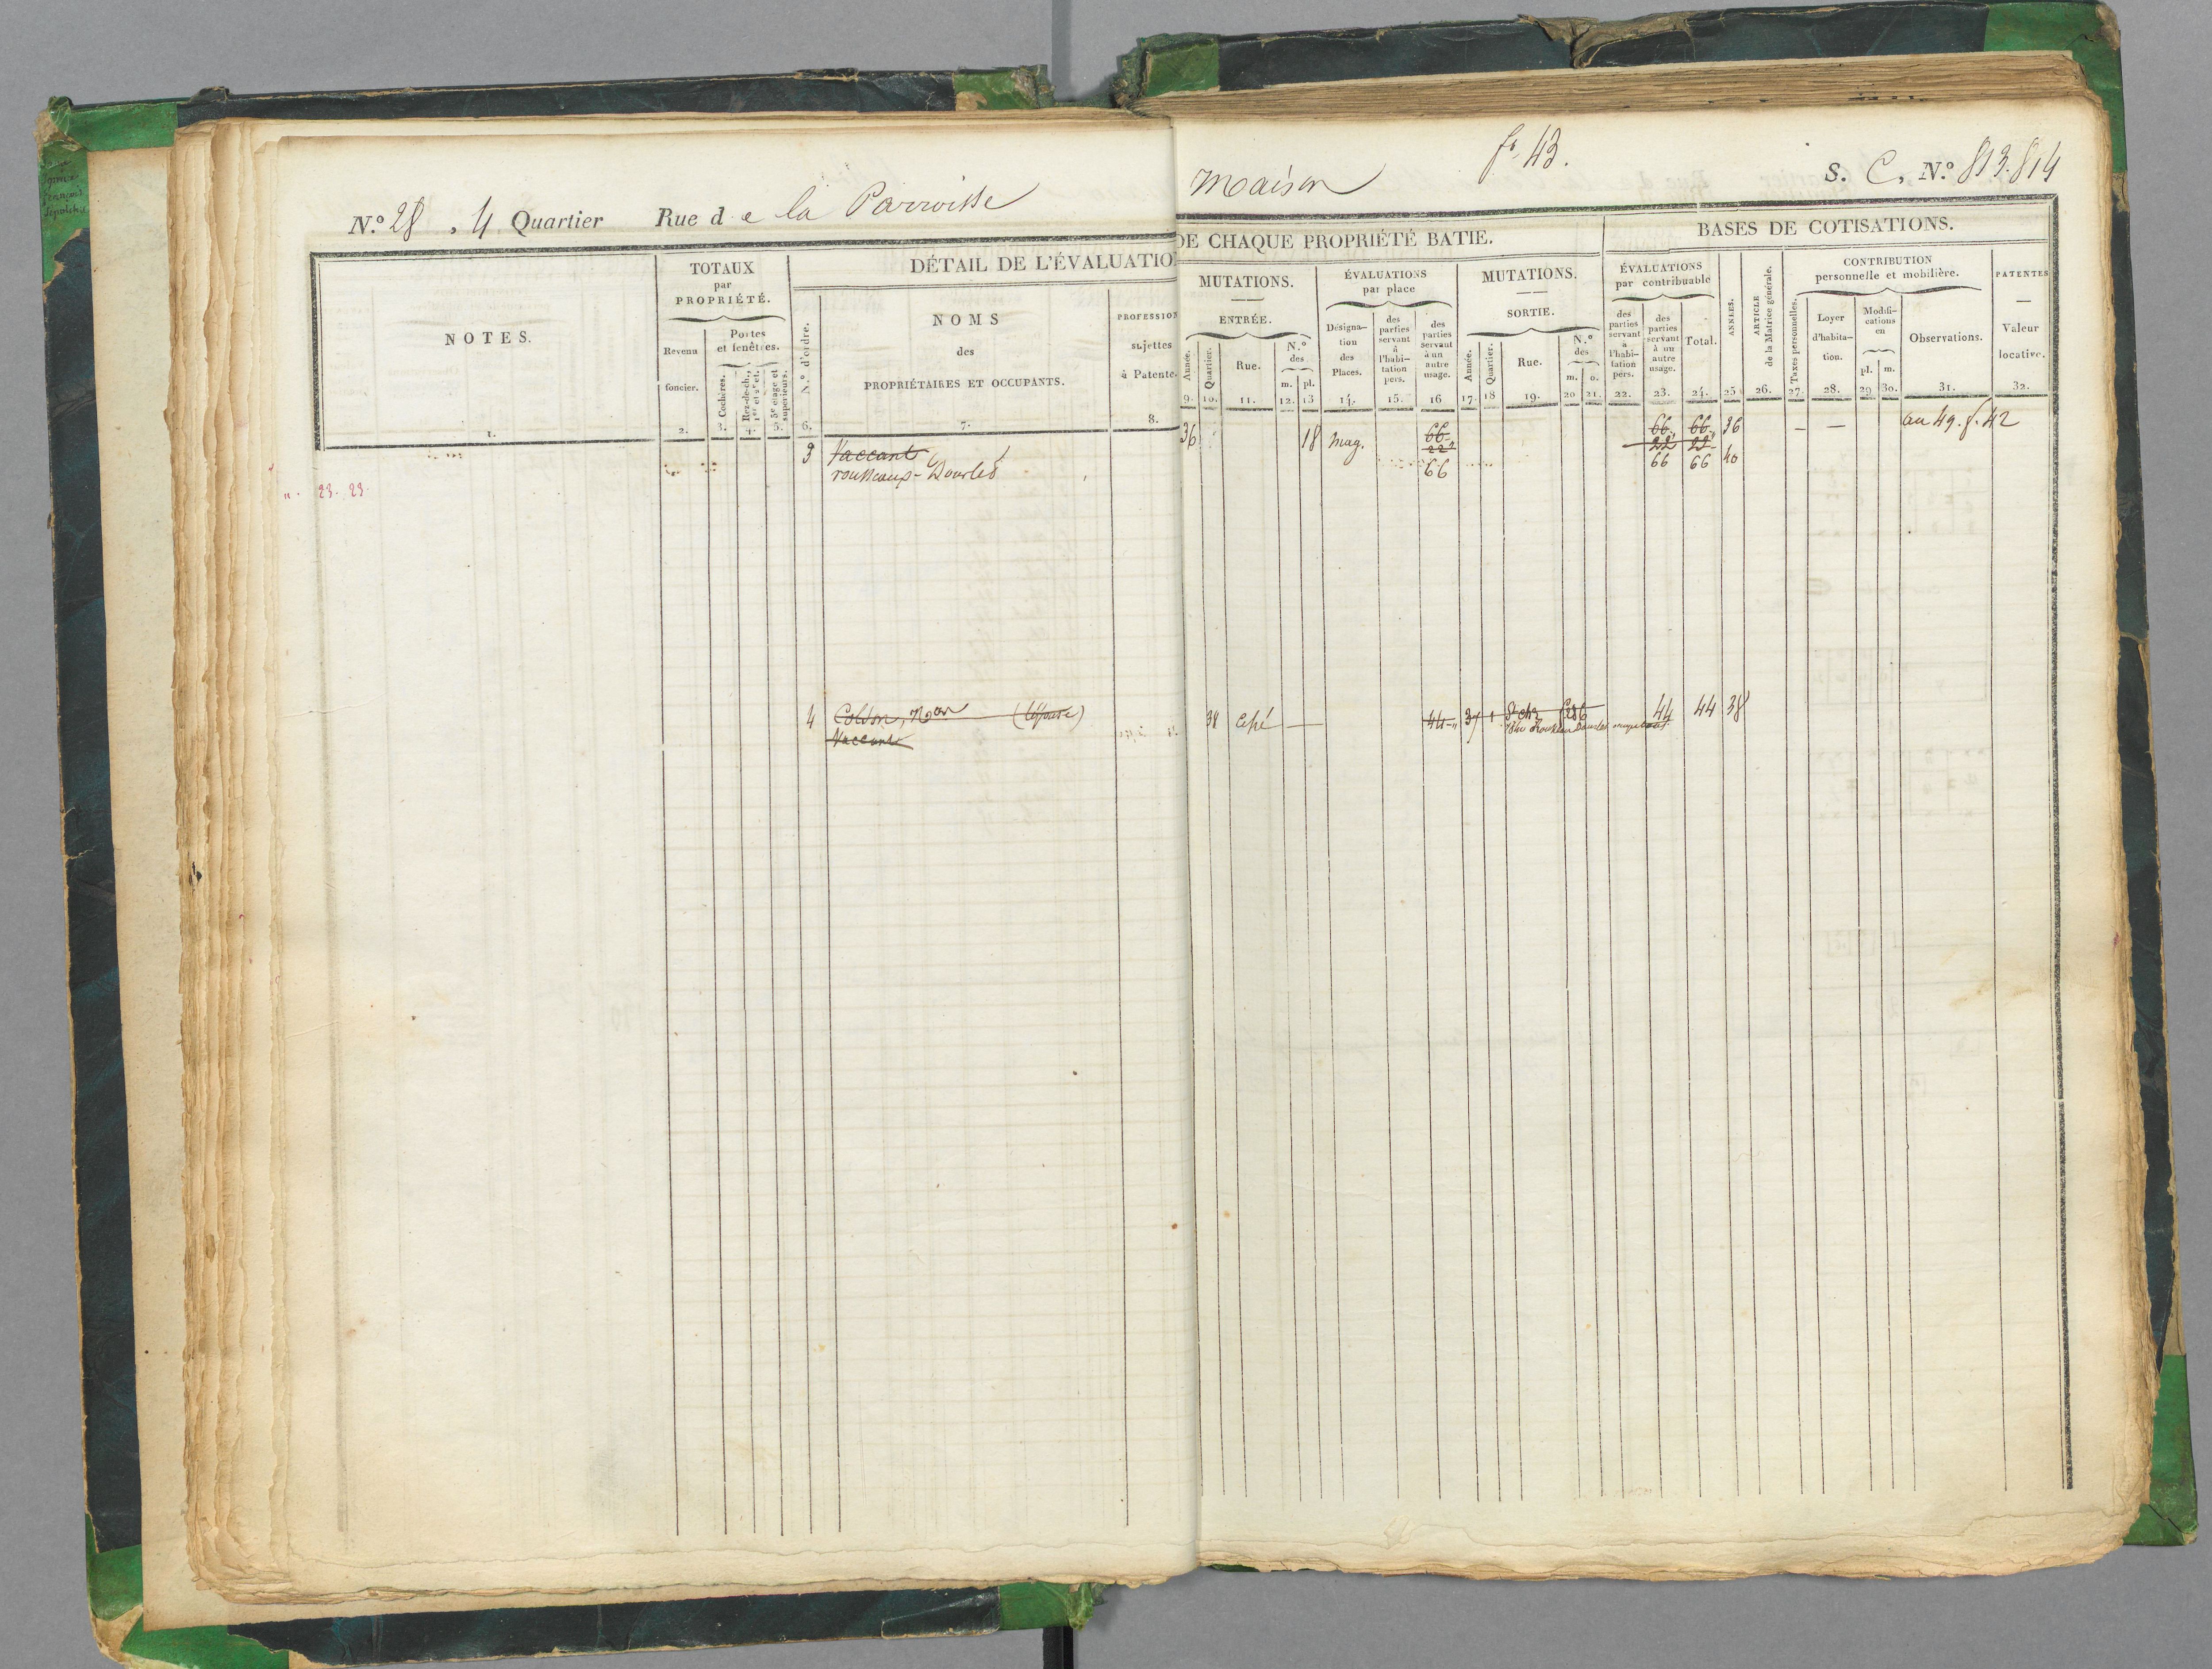 N.º 28, 4 Quartier Rue de la Parroisse
Maison
fº 43.
S. C, N.º 813.814
DÉTAIL DE L'ÉVALUATIO
DE CHAQUE PROPRIÉTÉ BATIE.
BASES DE COTISATIONS.
NOTES.
1.
TOTAUX
par
PROPRIÉTÉ.
Revenu
foncier.
2.
Portes
et fenêtres.
Cochères.
3.
Rez-de-ch.,
1er et 2e et.
4.
3e étage et
supérieurs.
5.
N.º d'ordre.
6.
NOMS
des
PROPRIÉTAIRES ET OCCUPANTS.
7.
PROFESSION
sujettes
à Patente.
8.
MUTATIONS.
ENTRÉE.
Année.
9.
Quartier.
10.
Rue.
11.
N.º
des
m. pl.
12. 13
ÉVALUATIONS
par place
Désigna-
tion
des
Places.
14.
des
parties
servant
à
l'habi-
tation
pers.
15.
des
parties
servant
à un
autre
usage.
16
MUTATIONS.
SORTIE.
Année.
17.
Quartier.
18
Rue.
19.
N.º
des
m. o.
20 21.
ÉVALUATIONS
par contribuable
des
parties
servant
à
l'habi-
tation
pers.
22.
des
parties
servant
à un
autre
usage.
23.
Total.
24.
ANNÉES.
25
ARTICLE
de la Matrice générale.
26.
CONTRIBUTION
personnelle et mobilière.
Taxes personnelles.
27.
Loyer
d'habita-
tion.
28.
Modifi-
cations
en
pl. m.
29 30.
Observations.
31.
PATENTES
Valeur
locative.
32.
3 Vaccant 36 18 mag. 66 66 66 36 - - au 49. f. 42
22 22 22
rousseaux-Dourles 66 66 66 40
23. 23.
4 Colson, 38 44 37 1 44 44 38
Vaccant